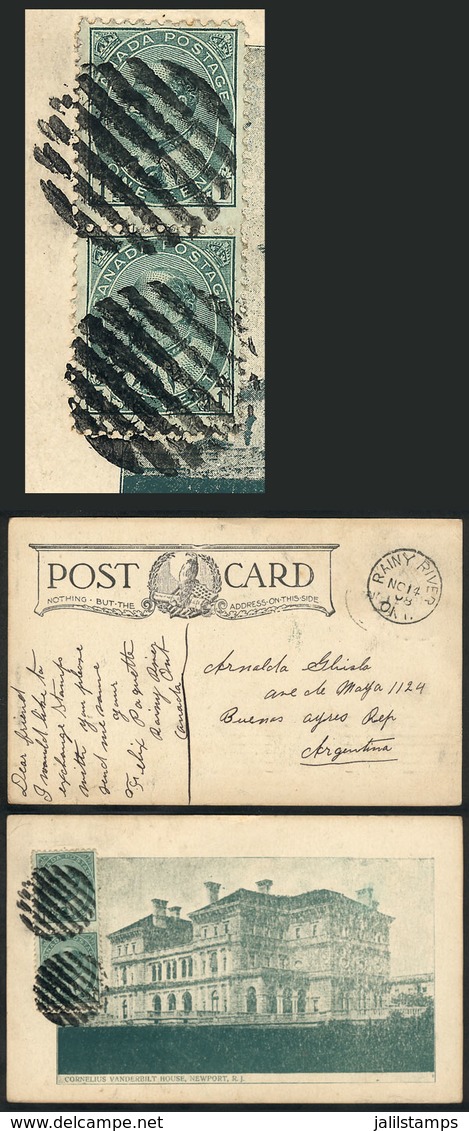 CANADA POSTAGE
ONE CENT
CANADA POSTAGE
POST CARD
NOTHING · BUT · THE ADDRESS · ON · THIS · SIDE
RAINY RIVER
NO 14
08
ONT.
Dear friend
I would like to
exchange stamps
with you please
send me some
your
Felix Paquette
Rainy River
Ont
Canada
Arnalda Ghisla
ave de Mayo 1124
Buenos ayres Rep
Argentina
CORNELIUS VANDERBILT HOUSE, NEWPORT, R. I.
www.jalilstamps.com